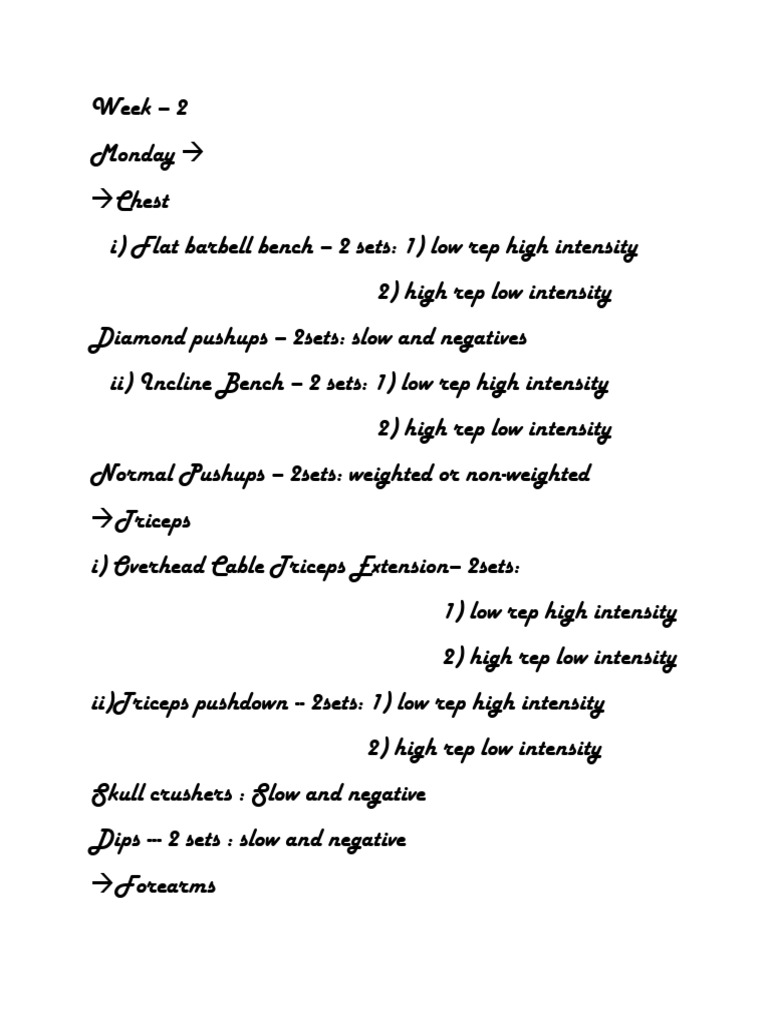 Week – 2
Monday →
→Chest
i) Flat barbell bench – 2 sets: 1) low rep high intensity
2) high rep low intensity
Diamond pushups – 2sets: slow and negatives
ii) Incline Bench – 2 sets: 1) low rep high intensity
2) high rep low intensity
Normal Pushups – 2sets: weighted or non-weighted
→Triceps
i) Overhead Cable Triceps Extension– 2sets:
1) low rep high intensity
2) high rep low intensity
ii)Triceps pushdown -- 2sets: 1) low rep high intensity
2) high rep low intensity
Skull crushers : Slow and negative
Dips --- 2 sets : slow and negative
→Forearms